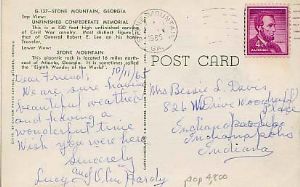 G.137—STONE MOUNTAIN, GEORGIA
Top View:
UNFINISHED CONFEDERATE MEMORIAL
This is a 130 foot high unfinished carving
of Civil War cavalry. Most distinct figure is
that of General Robert E. Lee on his horse
Traveler.
Lower View:
STONE MOUNTAIN
This gigantic rock is 16 miles north-
east of Atlanta, Georgia. It is sometimes called
the "Eighth Wonder of the World".
10/11/65
Dear Friend,
We are sure having
beautiful weather
and having a
wonderful time
Wish you were here
Sincerely
Lucy and Olin Hardy
STONE MOUNTAIN
GA.
1965
4¢
POST CARD
Mrs Bessie L Davis
826 W Drive Woodruff
Place
Indianapolis
Indiana
pop 4900